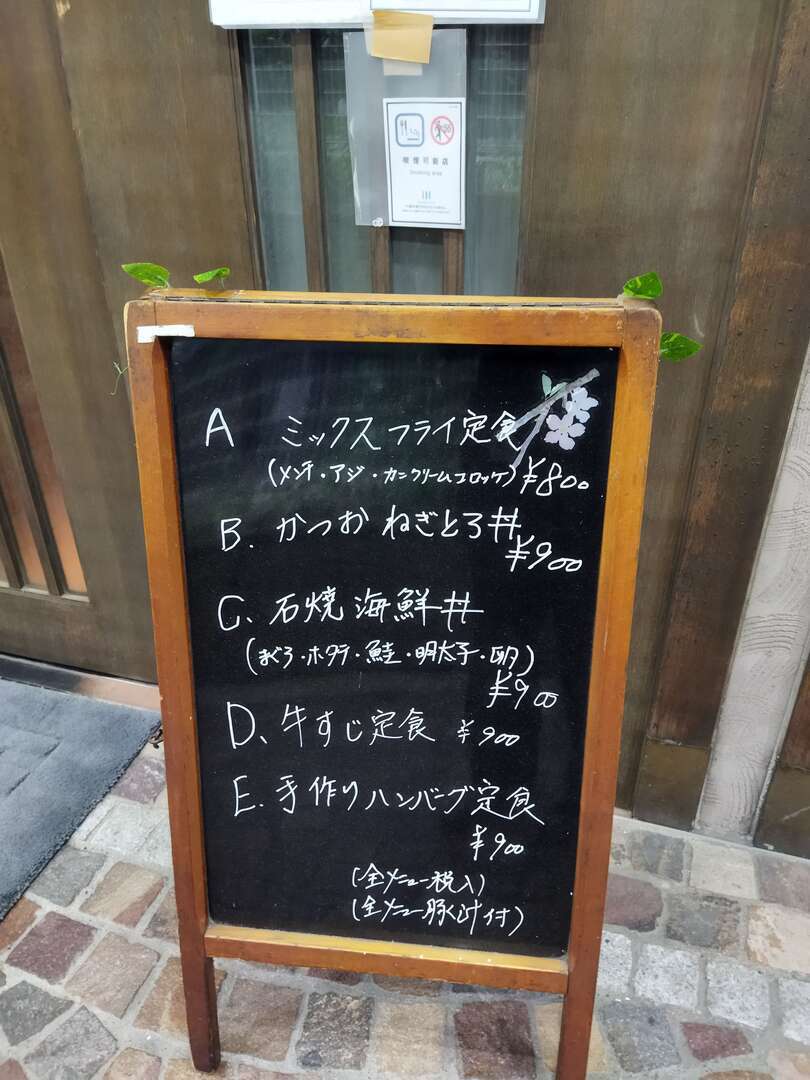 喫煙可能店
Smoking area
A ミックスフライ定食
(メンチ・アジ・カニクリームコロッケ) ¥800
B. かつおねぎとろ丼
¥900
C. 石焼海鮮丼
(まぐろ・ホタテ・鮭・明太子・卵)
¥900
D、牛すじ定食 ¥900
E. 手作りハンバーグ定食
¥900
(全メニュー税入)
(全メニュー豚汁付)